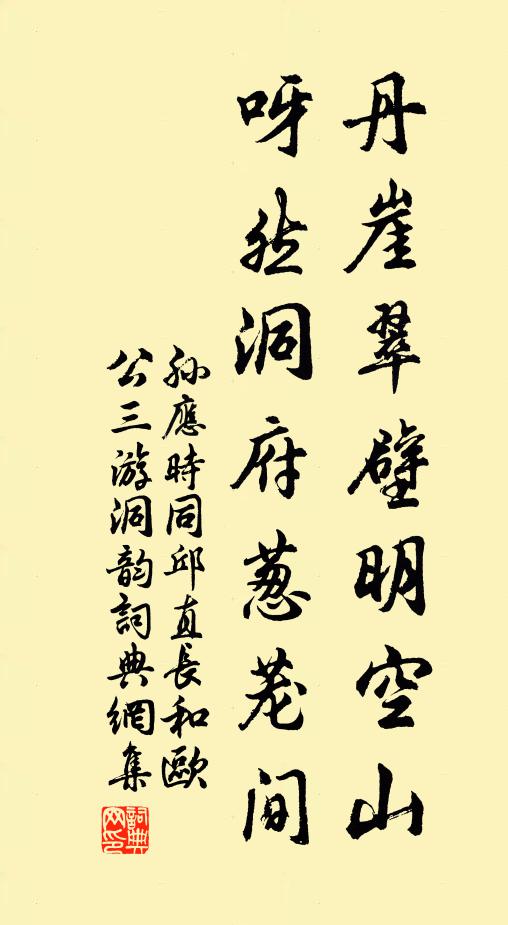 丹崖翠壁明空山
呀然洞府葱茏间
孙應時同邱直長和歐
公三游洞韵詞典網集
詞典网印